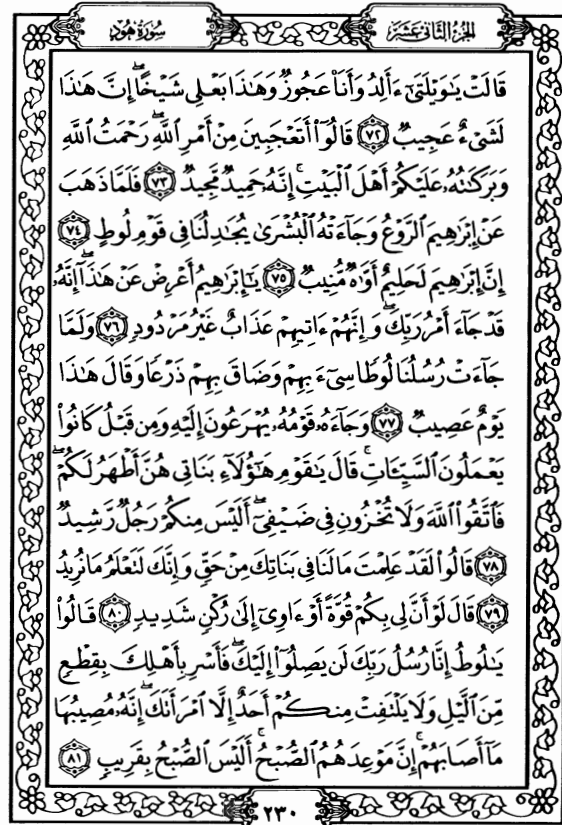 سُورَةُ هُودٍ
الجزء الثاني عشر
قَالَتْ يَٰوَيْلَتَىٰٓ ءَأَلِدُ وَأَنَا۠ عَجُوزٌ وَهَٰذَا بَعْلِى شَيْخًا ۖ إِنَّ هَٰذَا
لَشَىْءٌ عَجِيبٌ ٧٢ قَالُوٓا۟ أَتَعْجَبِينَ مِنْ أَمْرِ ٱللَّهِ ۖ رَحْمَتُ ٱللَّهِ
وَبَرَكَٰتُهُۥ عَلَيْكُمْ أَهْلَ ٱلْبَيْتِ ۚ إِنَّهُۥ حَمِيدٌ مَّجِيدٌ ٧٣ فَلَمَّا ذَهَبَ
عَنْ إِبْرَٰهِيمَ ٱلرَّوْعُ وَجَآءَتْهُ ٱلْبُشْرَىٰ يُجَٰدِلُنَا فِى قَوْمِ لُوطٍ ٧٤
إِنَّ إِبْرَٰهِيمَ لَحَلِيمٌ أَوَّٰهٌ مُّنِيبٌ ٧٥ يَٰٓإِبْرَٰهِيمُ أَعْرِضْ عَنْ هَٰذَآ ۖ إِنَّهُۥ
قَدْ جَآءَ أَمْرُ رَبِّكَ ۖ وَإِنَّهُمْ ءَاتِيهِمْ عَذَابٌ غَيْرُ مَرْدُودٍ ٧٦ وَلَمَّا
جَآءَتْ رُسُلُنَا لُوطًا سِىٓءَ بِهِمْ وَضَاقَ بِهِمْ ذَرْعًا وَقَالَ هَٰذَا
يَوْمٌ عَصِيبٌ ٧٧ وَجَآءَهُۥ قَوْمُهُۥ يُهْرَعُونَ إِلَيْهِ وَمِن قَبْلُ كَانُوا۟
يَعْمَلُونَ ٱلسَّيِّـَٔاتِ ۚ قَالَ يَٰقَوْمِ هَٰٓؤُلَآءِ بَنَاتِى هُنَّ أَطْهَرُ لَكُمْ ۖ
فَٱتَّقُوا۟ ٱللَّهَ وَلَا تُخْزُونِ فِى ضَيْفِىٓ ۖ أَلَيْسَ مِنكُمْ رَجُلٌ رَّشِيدٌ
٧٨ قَالُوا۟ لَقَدْ عَلِمْتَ مَا لَنَا فِى بَنَاتِكَ مِنْ حَقٍّ وَإِنَّكَ لَتَعْلَمُ مَا نُرِيدُ
٧٩ قَالَ لَوْ أَنَّ لِى بِكُمْ قُوَّةً أَوْ ءَاوِىٓ إِلَىٰ رُكْنٍ شَدِيدٍ ٨٠ قَالُوا۟
يَٰلُوطُ إِنَّا رُسُلُ رَبِّكَ لَن يَصِلُوٓا۟ إِلَيْكَ ۖ فَأَسْرِ بِأَهْلِكَ بِقِطْعٍ
مِّنَ ٱلَّيْلِ وَلَا يَلْتَفِتْ مِنكُمْ أَحَدٌ إِلَّا ٱمْرَأَتَكَ ۖ إِنَّهُۥ مُصِيبُهَا
مَآ أَصَابَهُمْ ۚ إِنَّ مَوْعِدَهُمُ ٱلصُّبْحُ ۚ أَلَيْسَ ٱلصُّبْحُ بِقَرِيبٍ ٨١
٢٣٠